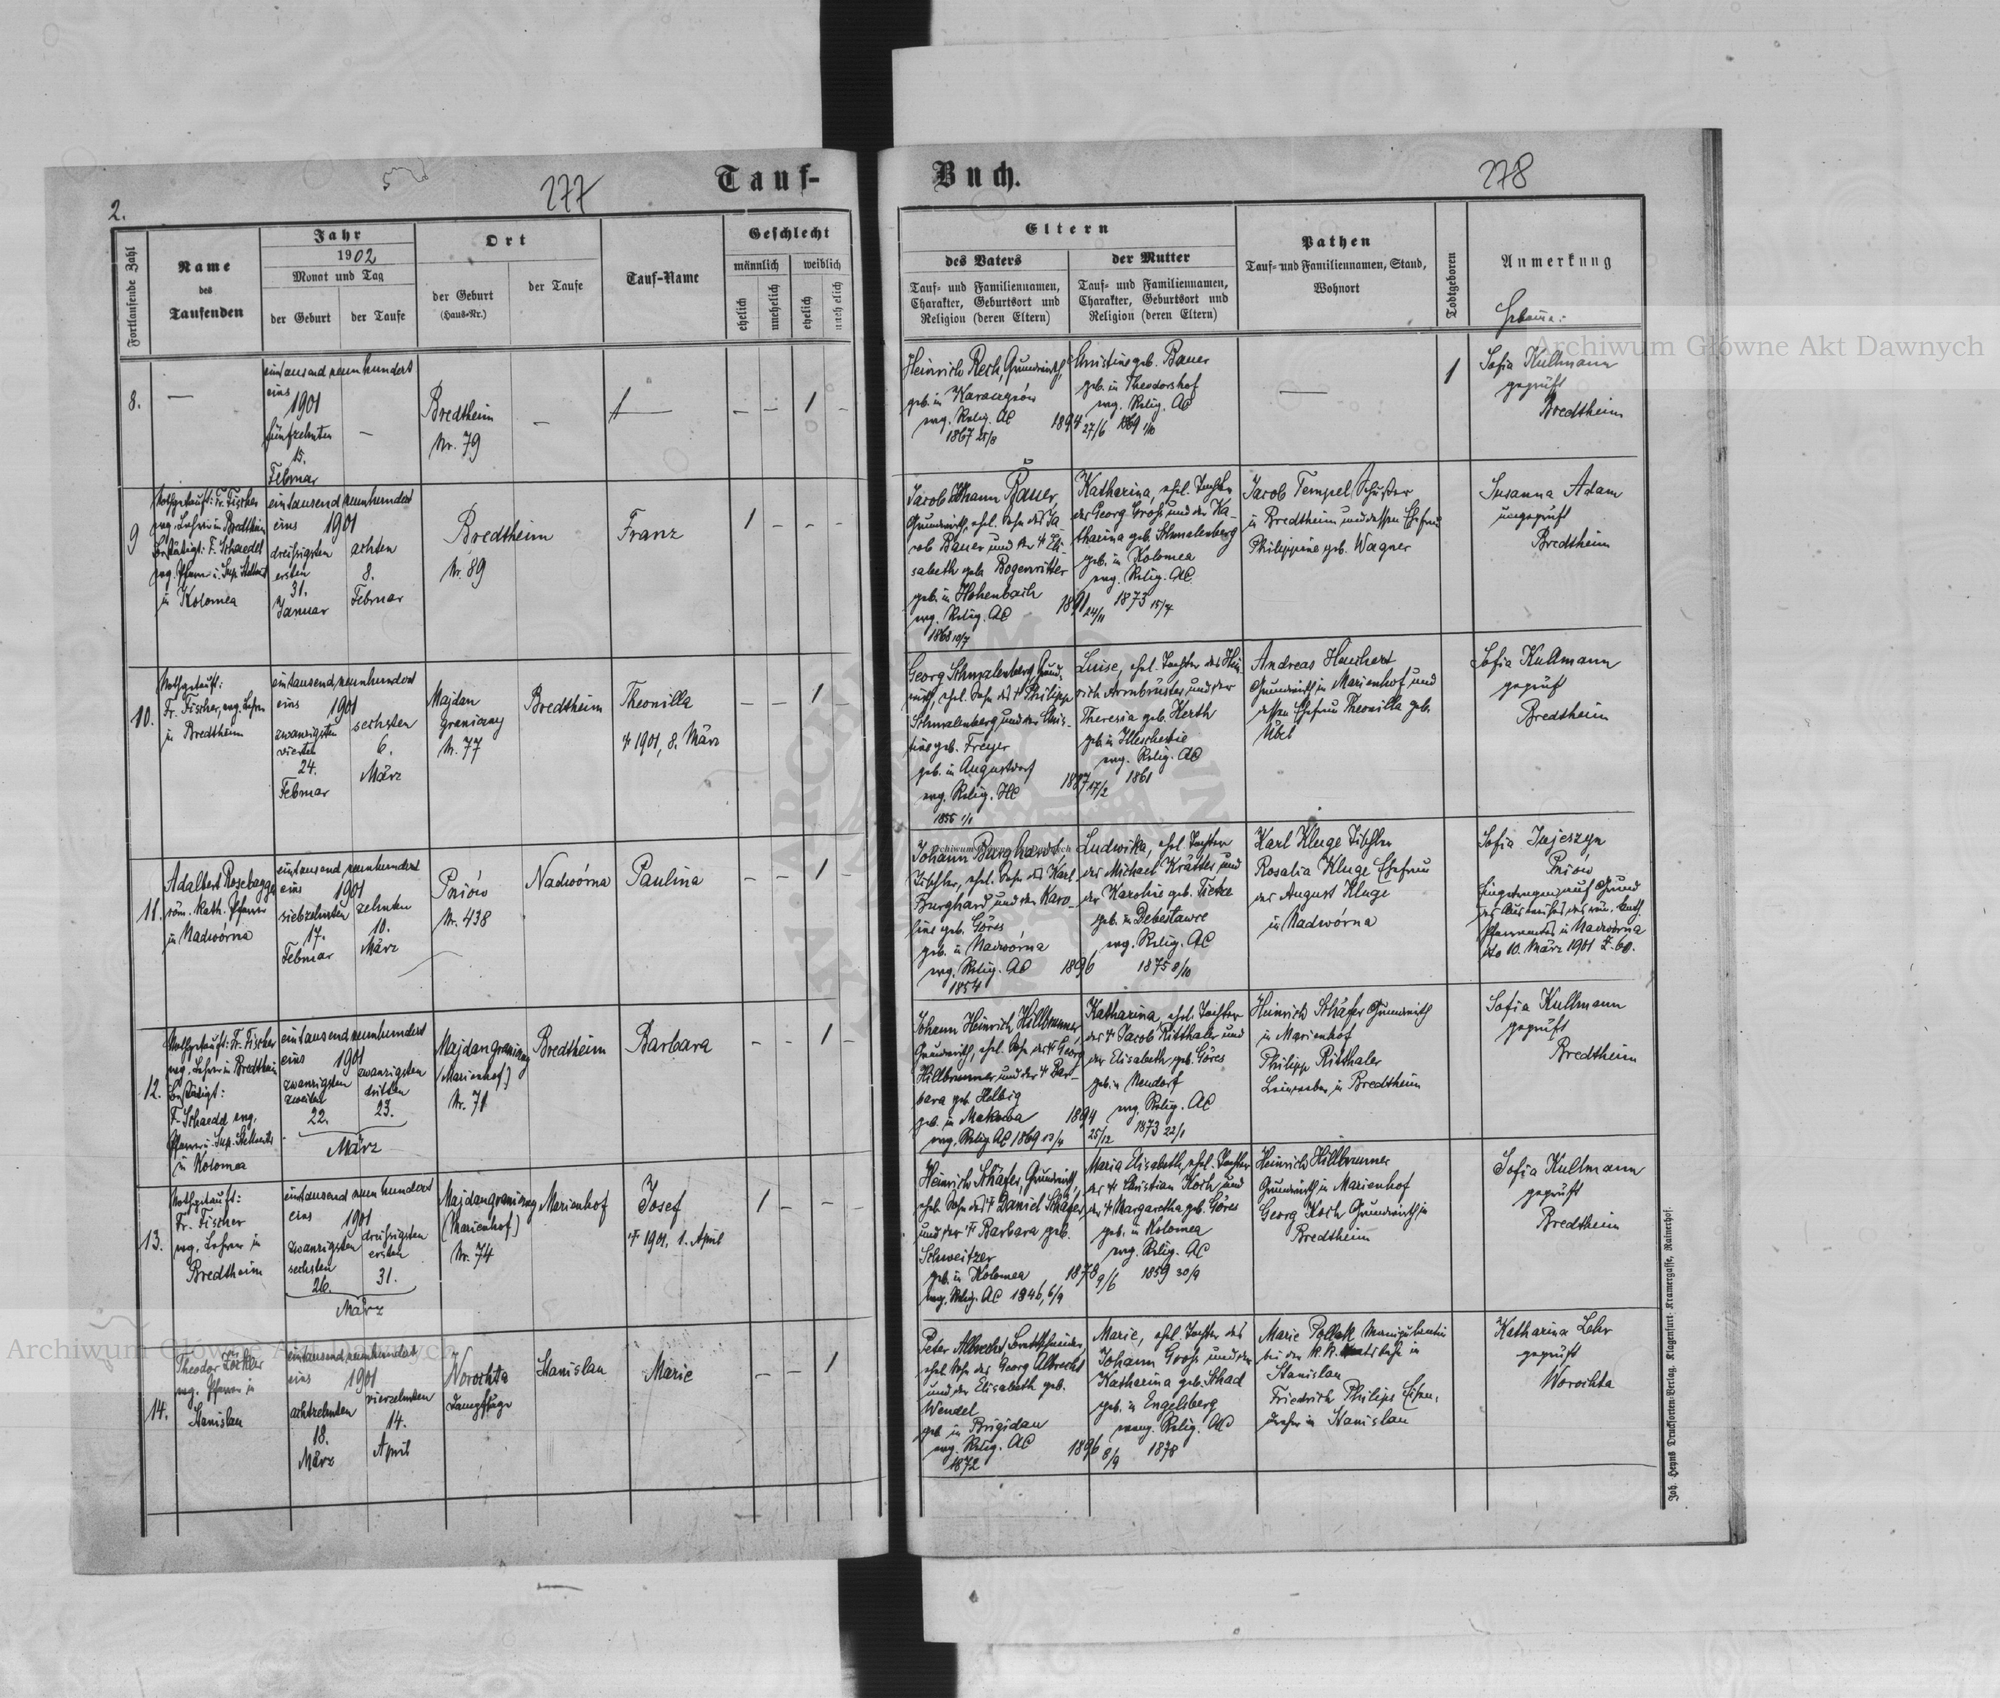 2.
277
Tauf-
Buch.
278
Fortlaufende Zahl
Name
des
Taufenden
Jahr
1902
Monat und Tag
der Geburt
der Taufe
Ort
der Geburt
(Haus-Nr.)
der Taufe
Tauf-Name
Geschlecht
männlich
weiblich
ehelich
unehelich
ehelich
unehelich
Eltern
des Vaters
Tauf- und Familiennamen,
Charakter, Geburtsort und
Religion (deren Eltern)
der Mutter
Tauf- und Familiennamen,
Charakter, Geburtsort und
Religion (deren Eltern)
Pathen
Tauf- und Familiennamen, Stand,
Wohnort
Todtgeboren
Anmerkung
8.
—
eintausend neunhundert
eins
1901
fünfzehnten
15.
Februar
—
Bredtheim
Nr. 79
—
— — 1 —
Heinrich Rech, Grundwirth,
geb. in
evg. Relig. AC
1867 25/8
1894 27/6
Christine geb. Bauer
geb. in Theodorshof
evg. Relig. AC
1869 1/10
—
1
Sofia Kullmann
geprüft
Bredtheim
9
Nothgetauft: Fr. Fischer
evg. Lehrer in Bredtheim
bestätigt: F. Schaedel
evg. Pfarrer u. Sup. Stellvert.
in Kolomea
eintausend neunhundert
eins 1901
dreißigsten
ersten
31.
Januar
achten
8.
Februar
Bredtheim
Nr. 89
Franz
1 — — —
Jacob Johann Bauer,
Grundwirth, ehel. Sohn des Ja-
cob Bauer und der † Eli-
sabeth geb. Bogenritter
geb. in Hohenbach
evg. Relig. AC
1868 10/7
1891 24/11
Katharina, ehel. Tochter
des Georg Groß und der Ka-
tharina geb. Schmalenberg
geb. in Kolomea
evg. Relig. AC
1873 15/7
Jacob Tempel, Schuster
in Bredtheim und dessen Ehefrau
Philippine geb. Wagner
Susanna Adam
ungeprüft
Bredtheim
10.
Nothgetauft:
Fr. Fischer, evg. Lehrer
in Bredtheim
eintausend neunhundert
eins 1901
zwanzigsten
vierten
24.
Februar
sechsten
6.
März
Majdan
graniczny
Nr. 77
Bredtheim
Theonilla
† 1901, 8. März
— — 1 —
Georg Schmalenberg, Grund-
wirth, ehel. Sohn des † Philipp
Schmalenberg und der Chris-
tine geb. Freyer
geb. in Augustdorf
evg. Relig. HC
1856 1/1
1887 17/2
Luise, ehel. Tochter des Hein-
rich Armbrüster und der
Theresia geb. Herth
geb. in Illeschestie
evg. Relig. AC
1861
Andreas Haubert
Grundwirth in Marienhof und
dessen Ehefrau Theonilla geb.
Übel
Sofia Kullmann
geprüft
Bredtheim
11.
Adalbert Rosebagga
röm. kath. Pfarrer
in Nadwórna
eintausend neunhundert
eins 1901
siebzehnten
17.
Februar
zehnten
10.
März
Pniów
Nr. 438
Nadwórna
Paulina
— — 1 —
Johann Burghard,
Tischler, ehel. Sohn des Karl
Burghard und der Karo-
line geb. Göres
geb. in Nadwórna
evg. Relig. AC
1854
1896
Ludwika, ehel. Tochter
des Michael Krättler und
der Karoline geb. Tietze
geb. in Debeslawce
evg. Relig. AC
1875 8/10
Karl Kluge Tischler
Rosalia Kluge Ehefrau
des August Kluge
in Nadwórna
Sofia
Pniów
Eingetragen auf Grund
des Ausweises des röm. kath.
Pfarramtes in Nadwórna
dto 10. März 1901 Z. 60.
12.
Nothgetauft: Fr. Fischer
evg. Lehrer in Bredtheim
bestätigt:
F. Schaedel evg.
Pfarrer u. Sup. Stellvertr.
in Kolomea
eintausend neunhundert
eins 1901
zwanzigsten
zweiten
22.
zwanzigsten
dritten
23.
März
Majdan graniczny
(Marienhof)
Nr. 71
Bredtheim
Barbara
— — 1 —
Johann Heinrich Hillbrunner,
Grundwirth, ehel. Sohn des † Georg
Hillbrunner und der † Bar-
bara geb. Helbig
geb. in Makowa
evg. Relig. AC 1869
1894
25/12
Katharina, ehel. Tochter
des † Jacob Ritthaler und
der Elisabeth geb. Göres
geb. in Neudorf
evg. Relig. AC
1873 22/1
Heinrich Schäfer Grundwirth
in Marienhof
Philipp Ritthaler
Leinweber in Bredtheim
Sofia Kullmann
geprüft
Bredtheim
13.
Nothgetauft:
Fr. Fischer
evg. Lehrer in
Bredtheim
eintausend neunhundert
eins 1901
zwanzigsten
sechsten
26.
dreißigsten
ersten
31.
März
Majdan graniczny
(Marienhof)
Nr. 74
Marienhof
Josef
† 1901, 1. April
1 — — —
Heinrich Schäfer, Grundwirth,
ehel. Sohn des † Daniel Schäfer
und der † Barbara geb.
Schweitzer
geb. in Kolomea
evg. Relig. AC 1846, 6/9
1878 9/6
Maria Elisabeth, ehel. Tochter
des † Christian Koch und
der † Margaretha geb. Göres
geb. in Kolomea
evg. Relig. AC
1859 30/9
Heinrich Hillbrunner
Grundwirth in Marienhof
Georg Koch Grundwirth in
Bredtheim
Sofia Kullmann
geprüft
Bredtheim
14.
Theodor Zöckler
evg. Pfarrer in
Stanislau
eintausend neunhundert
eins 1901
achtzehnten
18.
März
vierzehnten
14.
April
Worochta
Dampfsäge
Stanislau
Marie
— — 1
Peter Albrecht, Brettschneider,
ehel. Sohn des Georg Albrecht
und der Elisabeth geb.
Wendel
geb. in Brigidau
evg. Relig. AC
1872
1896 8/9
Marie, ehel. Tochter des
Johann Groß und der
Katharina geb. Schad
geb. in Engelsberg
evang. Relig. AC
1878
Marie Pollak Manipulantin
bei der k. k. Staatsbahn in
Stanislau
Friedrich Philips Eisen-
dreher in Stanislau
Katharina Lehr
geprüft
Worochta
Joh. Heyns Drucksorten-Verlag, Klagenfurt, Kramergasse, Rainerhof.
Archiwum Główne Akt Dawnych
Archiwum Główne Akt Dawnych
Archiwum Główne Akt Dawnych